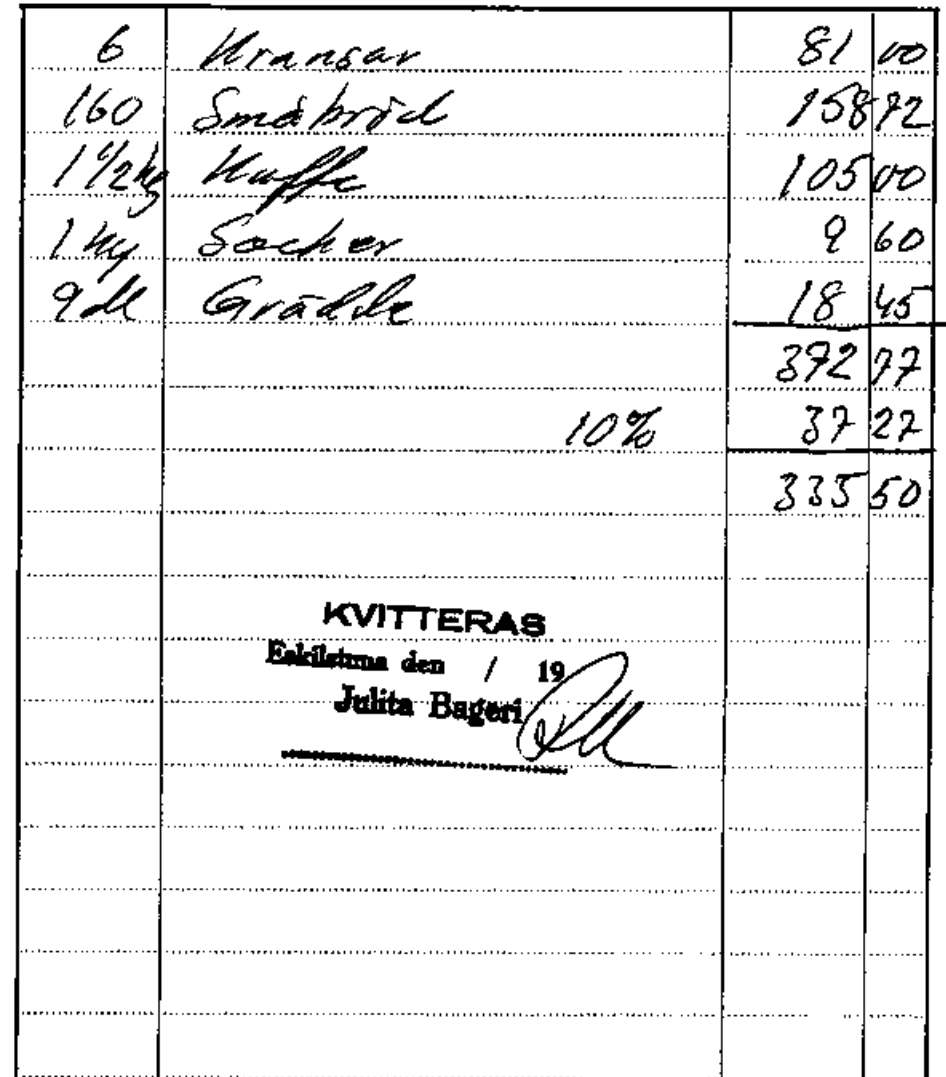 6 Kransar 81 00
160 Småbröd 158 72
1 1/2 kg Kaffe 105 00
1 kg Socker 9 60
9 dl Grädde 18 45
372 77
10% 37 27
335 50
KVITTERAS
Eskilstuna den / 19
Julita Bageri